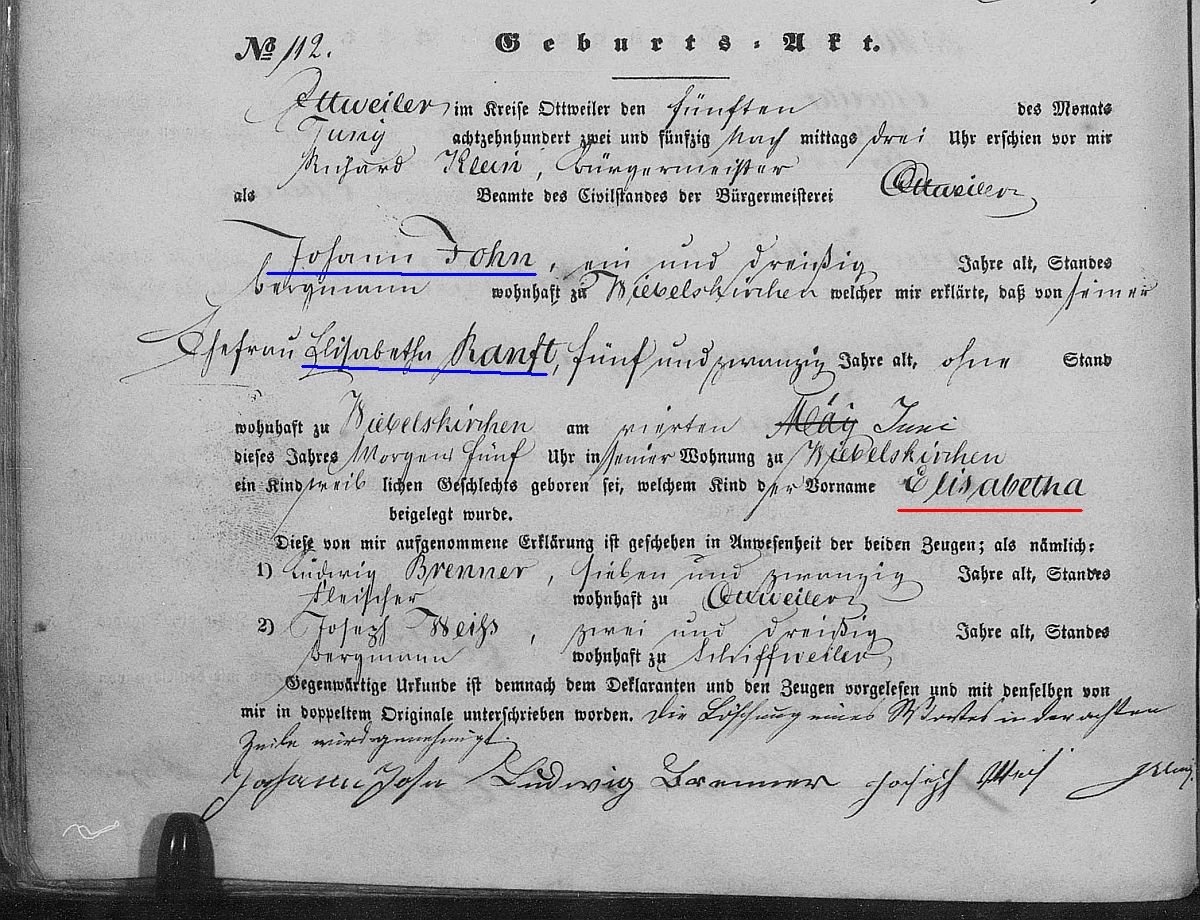 № 112. Geburts-Akt.
Ottweiler im Kreise Ottweiler den fünften des Monats
Juny achtzehnhundert zwei und fünfzig Nach mittags drei Uhr erschien vor mir
Richard Klein, Bürgermeister
als Beamte des Civilstandes der Bürgermeisterei Ottweiler
Johann John, ein und dreißig Jahre alt, Standes
Bergmann wohnhaft zu Wiebelskirchen welcher mir erklärte, daß von seiner
Ehefrau Elisabetha Ranft, fünf und zwanzig Jahre alt, ohne Stand
wohnhaft zu Wiebelskirchen am vierten May Juni
dieses Jahres Morgens fünf Uhr in seiner Wohnung zu Wiebelskirchen
ein Kind weib lichen Geschlechts geboren sei, welchem Kind der Vorname Elisabetha
beigelegt wurde.
Diese von mir aufgenommene Erklärung ist geschehen in Anwesenheit der beiden Zeugen; als nämlich:
1) Ludwig Brenner, sieben und zwanzig Jahre alt, Standes
Fleischer wohnhaft zu Ottweiler
2) Joseph Weiß, zwei und dreißig Jahre alt, Standes
Bergmann wohnhaft zu Schiffweiler
Gegenwärtige Urkunde ist demnach dem Deklaranten und den Zeugen vorgelesen und mit denselben von
mir in doppeltem Originale unterschrieben worden. Die Löschung eines Wortes in der achten
Zeile wird genehmigt.
Johann John Ludwig Brenner Joseph Weis Klein